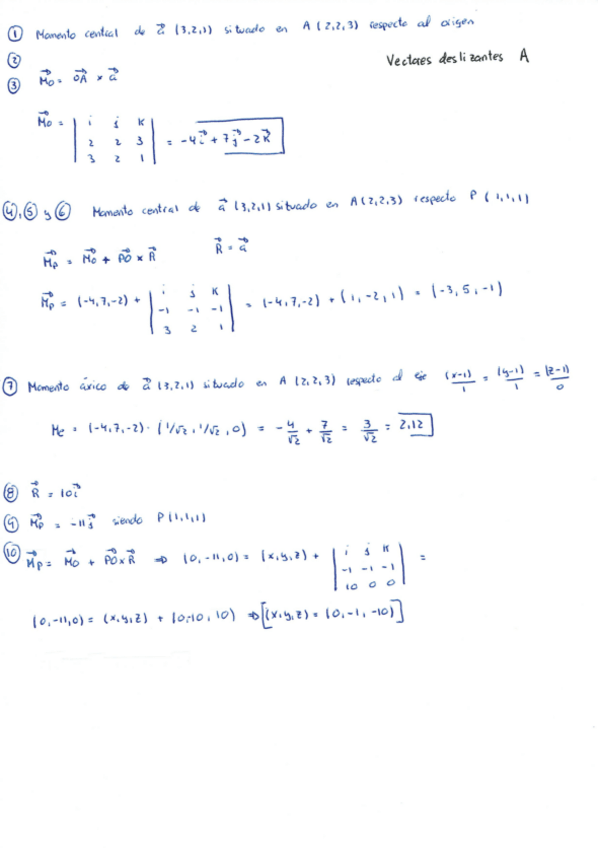 ① Momento central de a⃗ (3,2,1) situado en A(2,2,3) respecto al origen
②
Vectores deslizantes A
③ M⃗o = O⃗A × a⃗
M⃗o = | i j k |
| 2 2 3 |
| 3 2 1 | = -4i⃗ + 7j⃗ - 2k⃗
④,⑤ y ⑥ Momento central de a⃗ (3,2,1) situado en A(2,2,3) respecto P(1,1,1)
M⃗p = M⃗o + P⃗O × R⃗ R⃗ = a⃗
M⃗p = (-4,7,-2) + | i j k |
| -1 -1 -1 |
| 3 2 1 | = (-4,7,-2) + (1,-2,1) = (-3,5,-1)
⑦ Momento áxico de a⃗ (3,2,1) situado en A(2,2,3) respecto al eje (x-1)/1 = (y-1)/1 = (z-1)/0
Me = (-4,7,-2)·(1/√2, 1/√2, 0) = -4/√2 + 7/√2 = 3/√2 = 2,12
⑧ R⃗ = 10i⃗
⑨ M⃗p = -11j⃗ siendo P(1,1,1)
⑩ M⃗p = M⃗o + P⃗O×R⃗ ⇒ (0,-11,0) = (x,y,z) + | i j k |
| -1 -1 -1 |
| 10 0 0 | =
(0,-11,0) = (x,y,z) + (0,-10,10) ⇒ [(x,y,z) = (0,-1,-10)]